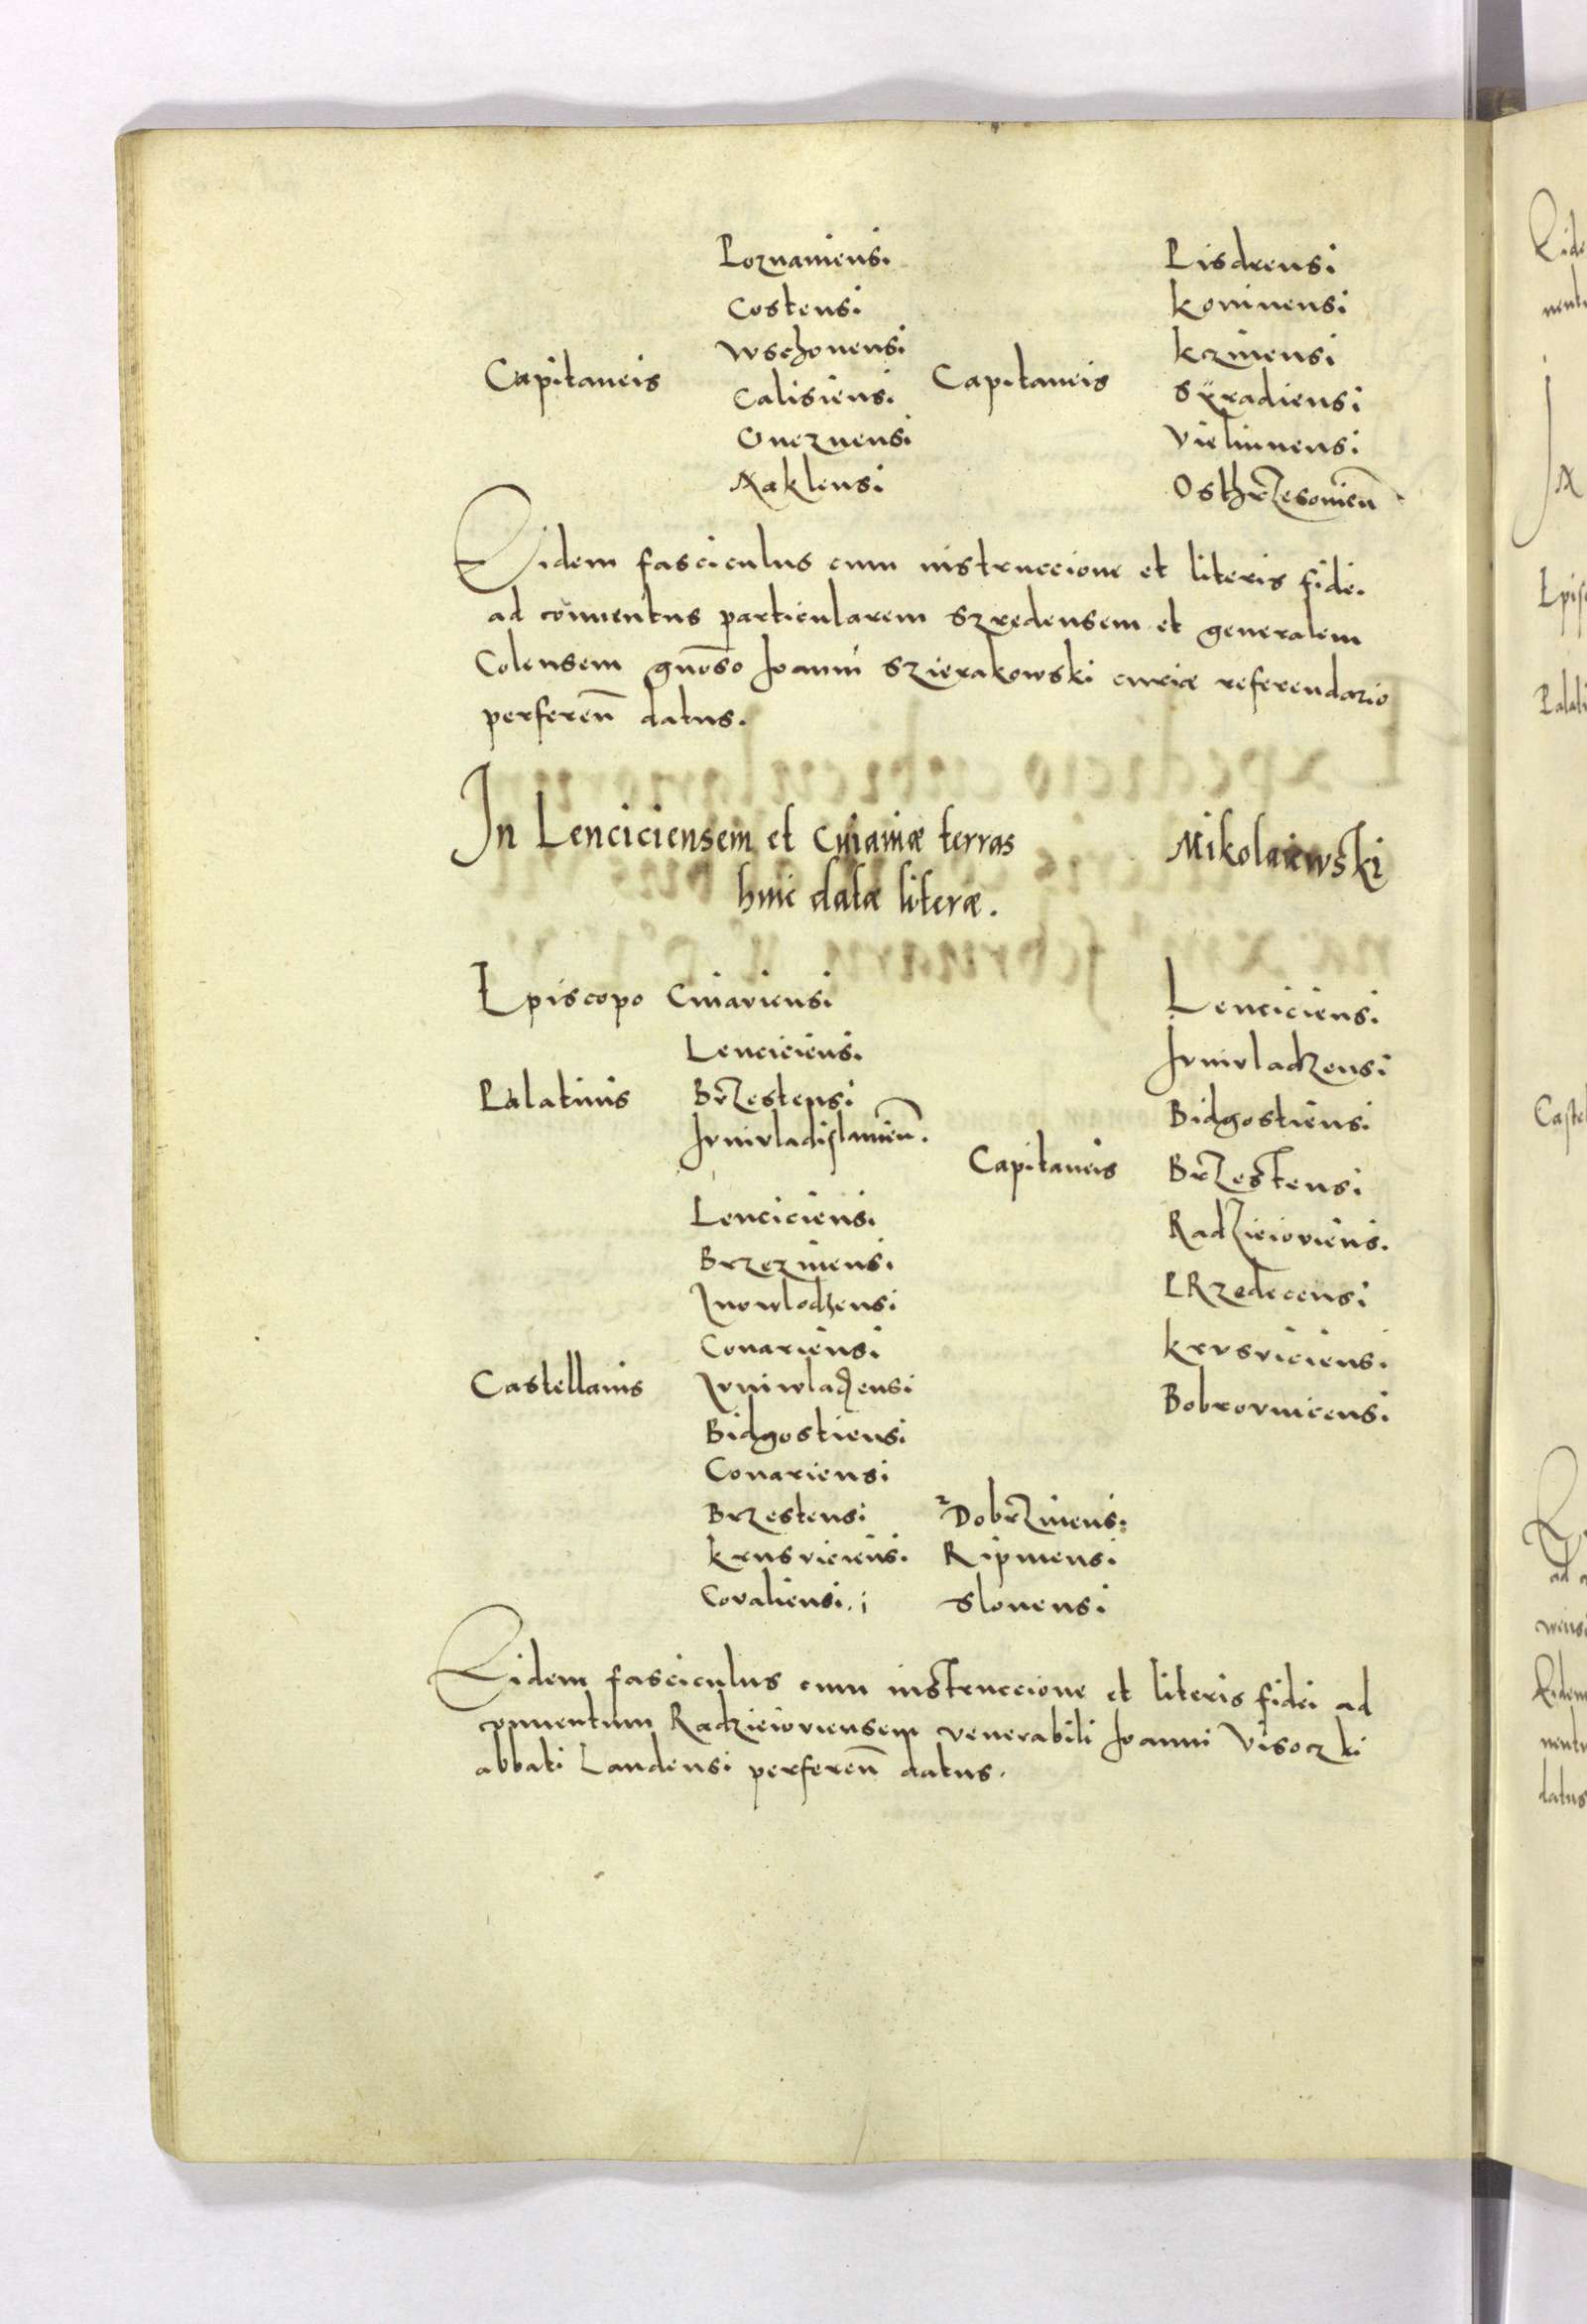 Capitaneis
Poznaniensi.
Costensi
Wschovensi
Calisiensi
Gneznensi
Naklensi
Capitaneis
Pisdrensi
Koninensi
Kczinensi
Sÿradiensi
Vielunensi
Osthrzesovien̄
Eidem fasciculus cum instruccione et literis fidei
ad conventus particularem Szredensem et generalem
Colensem gnōso Joanni Szierakowski curiæ referendario
perferen̄ datus.
In Lenciciensem et Cuiaviæ terras
Mikolaiewski
huic datæ literæ.
Episcopo Cuiaviensi
Palatinis
Lenciciensi.
Brzestensi
Junivladislavien̄.
Castellanis
Lenciciensi
Brzezinensi
Inowlodzensi
Conariensi
Juniwladzensi
Bidgostiensi
Conariensi
Brzestensi
Krusviciensi.
Covaliensi.
Dobrzinensi
Ripinensi
Slonensi
Capitaneis
Lenciciensi
Junivladzensi
Bidgostiensi
Brzestensi
Radzieioviensi.
PRzedecensi
Krusviciensi
Bobrovnicensi
Eidem fasciculus cum instruccione et literis fidei ad
conventum Radzieioviensem venerabili Joanni Visoczki
abbati Landensi perferen̄ datus.